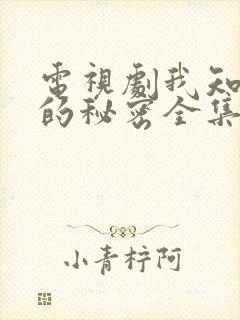 電視劇我知
的秘密全集
小青梓阿